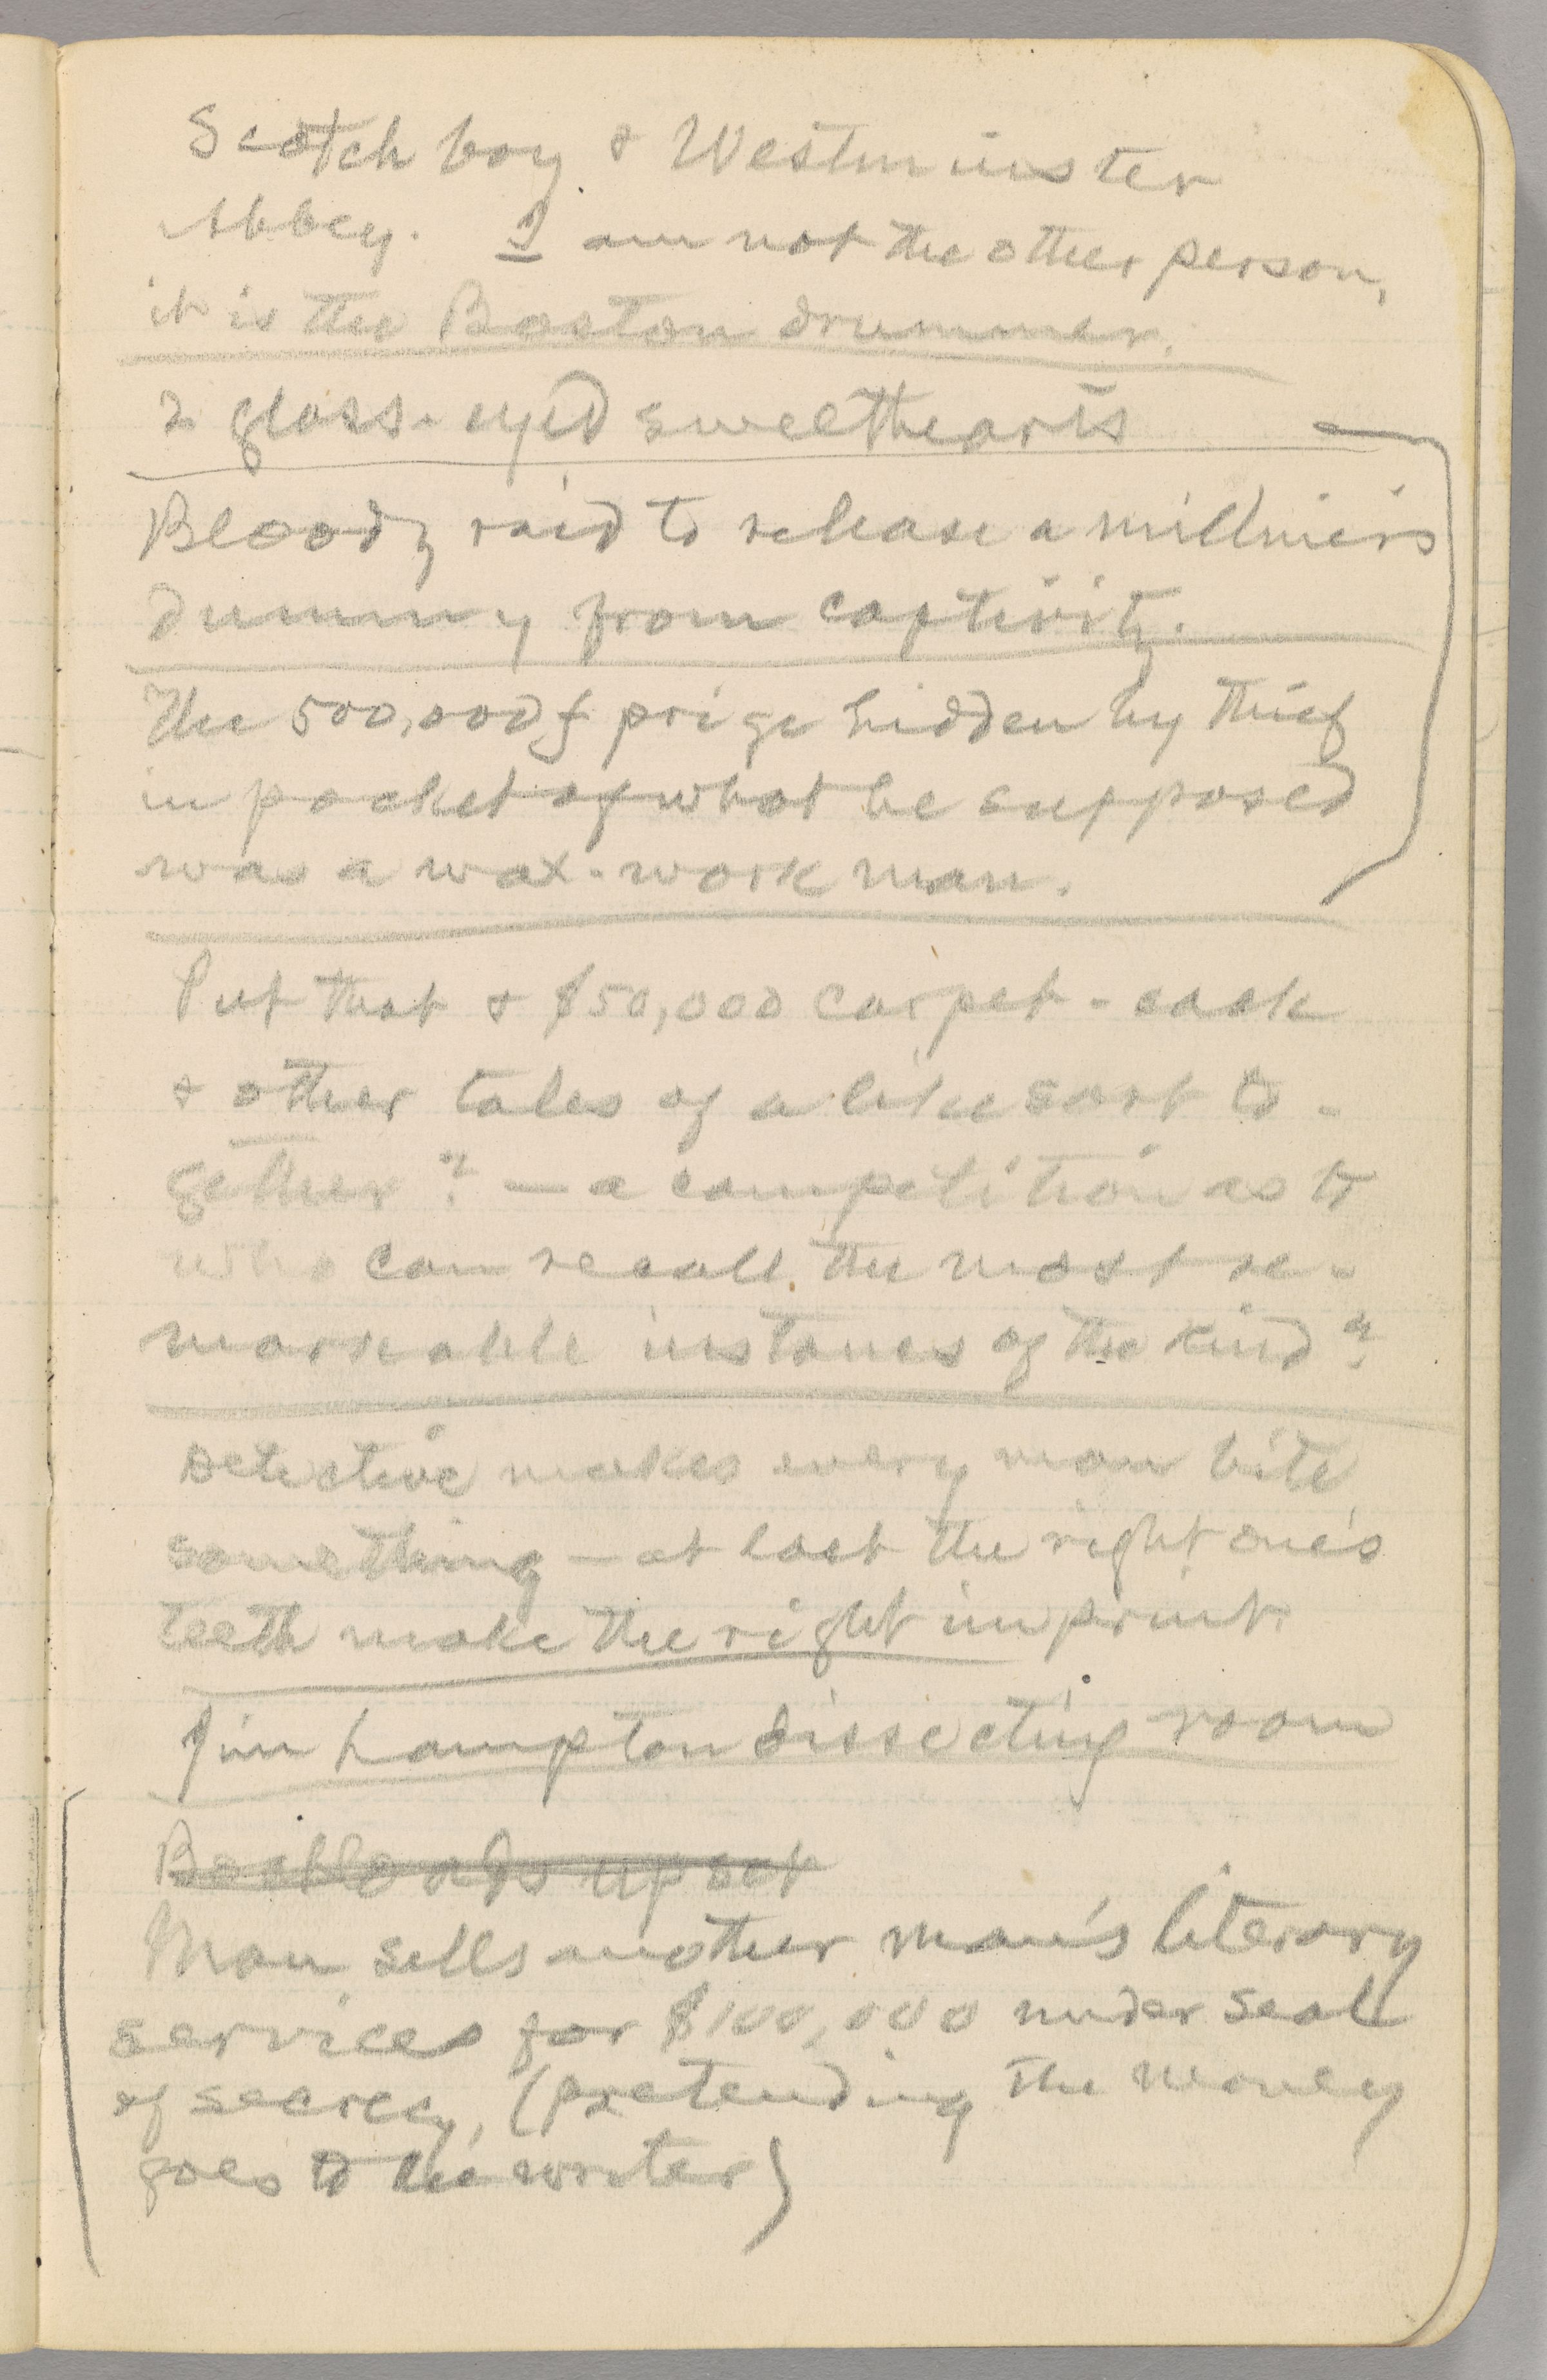 Scotch boy & Westminster
Abbey. I am not the other person,
it is the Boston drummer.
2 glass-eyed sweethearts
Bloody raid to release a milliner's
dummy from captivity.
The 500,000f prize hidden by thief
in pocket of what he supposed
was a wax-work man.
Put that & $50,000 carpet-sack
& other tales of a like sort to-
gether? — a competition as to
who can recall the most re-
markable instances of the kind?
Detective makes every man bite
something — at last the right one's
teeth make the right imprint.
Jim Lampton dissecting room
Boatloads upset
Man sells another man's literary
services for $100,000 under seal
of secrecy, (pretending the money
goes to the writer)